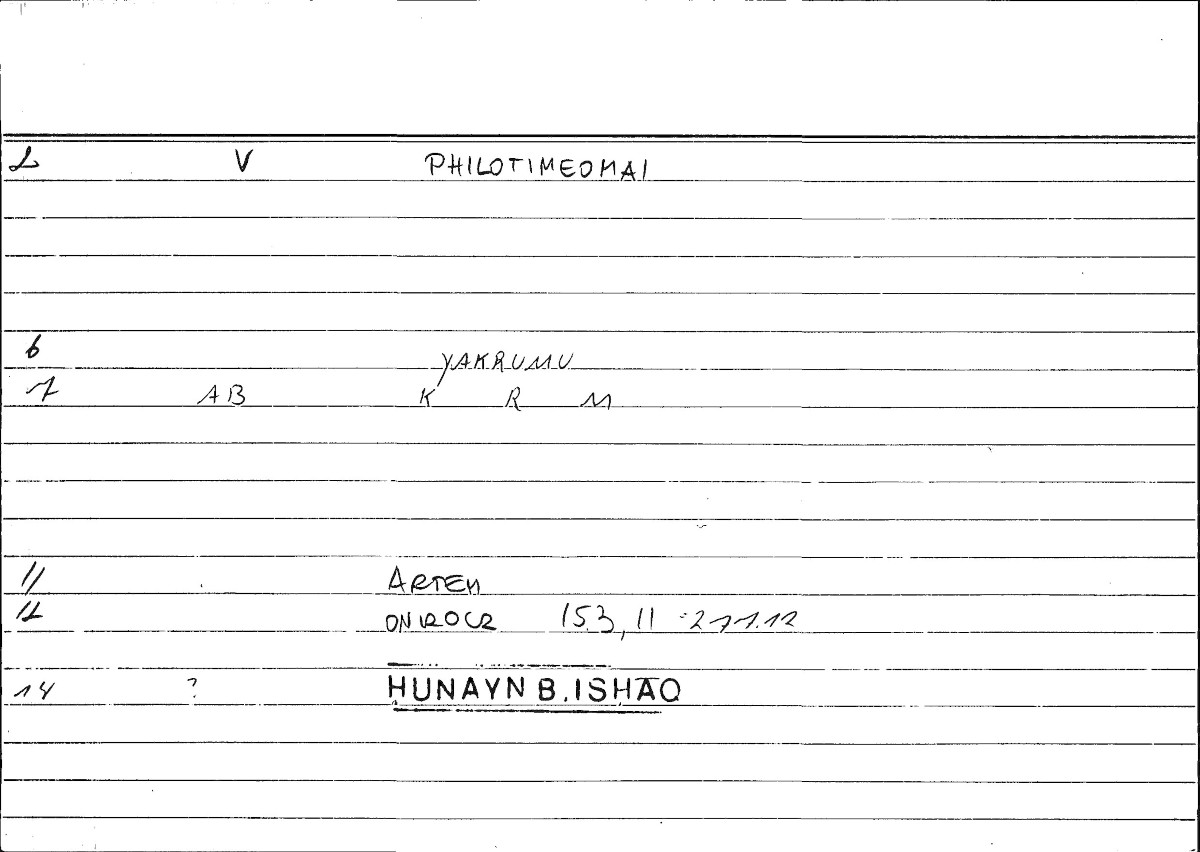 2 V PHILOTIMEOMAI
6 YAKRUMU
7 AB K R M
11 ARTEM
12 ONIROCR 153,11 = 271.12
14 ? ḤUNAYN B. ISḤĀQ